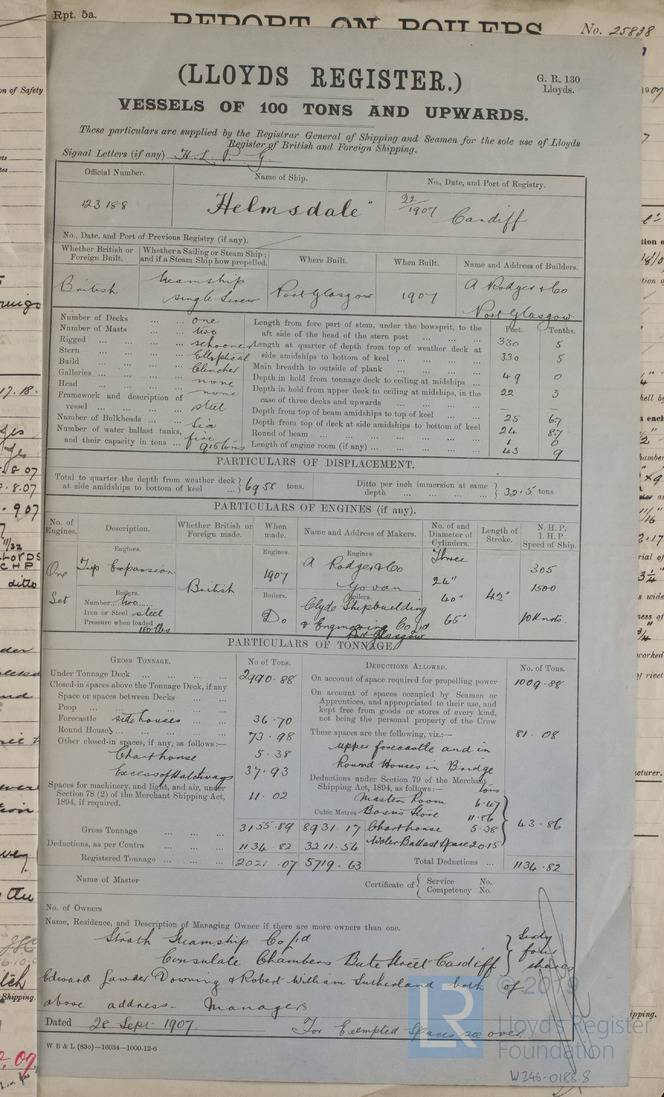 Rpt. 5a.
REPORT ON BOILERS
No. 25838
(LLOYDS REGISTER.)
G. R. 130
Lloyds.
VESSELS OF 100 TONS AND UPWARDS.
These particulars are supplied by the Registrar General of Shipping and Seamen for the sole use of Lloyds
Register of British and Foreign Shipping.
Signal Letters (if any) H. L. P. G.
Official Number. Name of Ship. No., Date, and Port of Registry.
123188 "Helmsdale" 22/1907 Cardiff
No., Date, and Port of Previous Registry (if any).
Whether British or Foreign Built. Whether a Sailing or Steam Ship; and if a Steam Ship how propelled. Where Built. When Built. Name and Address of Builders.
British Steamship single Screw Port Glasgow 1907 A Rodger & Co Port Glasgow
Number of Decks one
Number of Masts two
Rigged schooner
Stern Elliptical
Build Clincher
Galleries none
Head none
Framework and description of vessel steel
Number of Bulkheads Six
Number of water ballast tanks, and their capacity in tons five 916 tons
Feet. Tenths.
Length from fore part of stem, under the bowsprit, to the aft side of the head of the stern post 330 5
Length at quarter of depth from top of weather deck at side amidships to bottom of keel 330 5
Main breadth to outside of plank 49 0
Depth in hold from tonnage deck to ceiling at midships 22 3
Depth in hold from upper deck to ceiling at midships, in the case of three decks and upwards — —
Depth from top of beam amidships to top of keel 25 67
Depth from top of deck at side amidships to bottom of keel 24 87
Round of beam 1 0
Length of engine room (if any) 43 9
PARTICULARS OF DISPLACEMENT.
Total to quarter the depth from weather deck at side amidships to bottom of keel 6958 tons.
Ditto per inch immersion at same depth 32.5 tons
PARTICULARS OF ENGINES (if any).
No. of Engines. Description. Whether British or Foreign made. When made. Name and Address of Makers. No. of and Diameter of Cylinders. Length of Stroke. N. H. P. I. H. P. Speed of Ship.
One Set
Engines. Trip Expansion
British
Engines. 1907
Engines A Rodger & Co Govan
Three 24" 40" 65"
42"
305 1500 10 Knots.
Boilers.
Number two
Iron or Steel steel
Pressure when loaded 180 lbs
Boilers. Do
Boilers. Clyde Shipbuilding & Engineering Co Ld Port Glasgow
PARTICULARS OF TONNAGE.
GROSS TONNAGE. No of Tons.
Under Tonnage Deck 2990.88
Closed-in spaces above the Tonnage Deck, if any
Space or spaces between Decks
Poop
Forecastle side houses 36.70
Round Houses 73.98
Other closed-in spaces, if any, as follows:—
Charthouse 5.38
Excess of Hatchways 37.93
Spaces for machinery, and light, and air, under Section 78 (2) of the Merchant Shipping Act, 1894, if required. 11.02
Cubic Metres
Gross Tonnage 3155.89 8931.17
Deductions, as per Contra 1134.82 3211.54
Registered Tonnage 2021.07 5719.63
DEDUCTIONS ALLOWED. No. of Tons.
On account of space required for propelling power 1009.88
On account of spaces occupied by Seamen or Apprentices, and appropriated to their use, and kept free from goods or stores of every kind, not being the personal property of the Crew
These spaces are the following, viz.:— 81.08
upper forecastle and in
Round Houses in Bridge
Deductions under Section 79 of the Merchant Shipping Act, 1894, as follows:— tons
Masters Room 6.47
Bosns Store 11.86
Charthouse 5.38
Water Ballast Space 20.15
43.86
Total Deductions 1134.82
Name of Master
Certificate of Service No.
Competency No.
No. of Owners
Name, Residence, and Description of Managing Owner if there are more owners than one.
Strath Steamship Co Ld
Consulate Chambers Bute Street Cardiff
Sixty four shares
Edward Lawder Downing & Robert William Sutherland both of
above address. Managers
Dated 28 Sept 1907.
For Exempted Spaces see over.
W B & L (830)—16034—1000-12-6
© 2019
LR
Lloyd's Register
Foundation
W246-0188.8